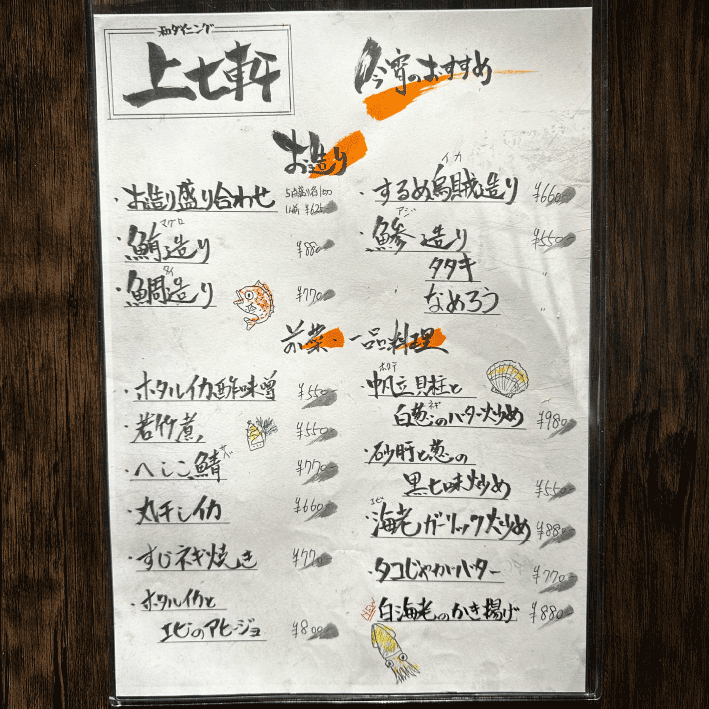 和ダイニング
上七軒
今宵のおすすめ
お造り
・お造り盛り合わせ
・鮪造り ¥880-
マグロ
・鯛造り ¥770-
タイ
・するめ烏賊造り ¥660-
イカ
・鯵造り ¥550-
アジ
タタキ 〃
なめろう 〃
前菜・一品料理
・ホタルイカ酢味噌 ¥550-
・若竹煮 ¥550-
・へしこ鯖 ¥770-
サバ
・丸干しイカ ¥660-
・すじネギ焼き ¥770-
・ホタルイカと
エビのアヒージョ ¥800-
・帆立貝柱と
ホタテ
白葱のバター炒め ¥980-
ネギ
・砂肝と葱の
黒七味炒め ¥550-
・海老ガーリック炒め ¥880-
エビ
・タコじゃがバター ¥770-
・白海老のかき揚げ ¥880-